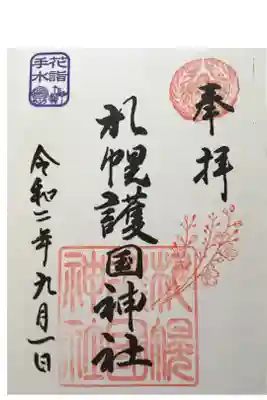 奉拝
札幌護国神社
令和二年九月一日
花詣
手水
札幌護国神社